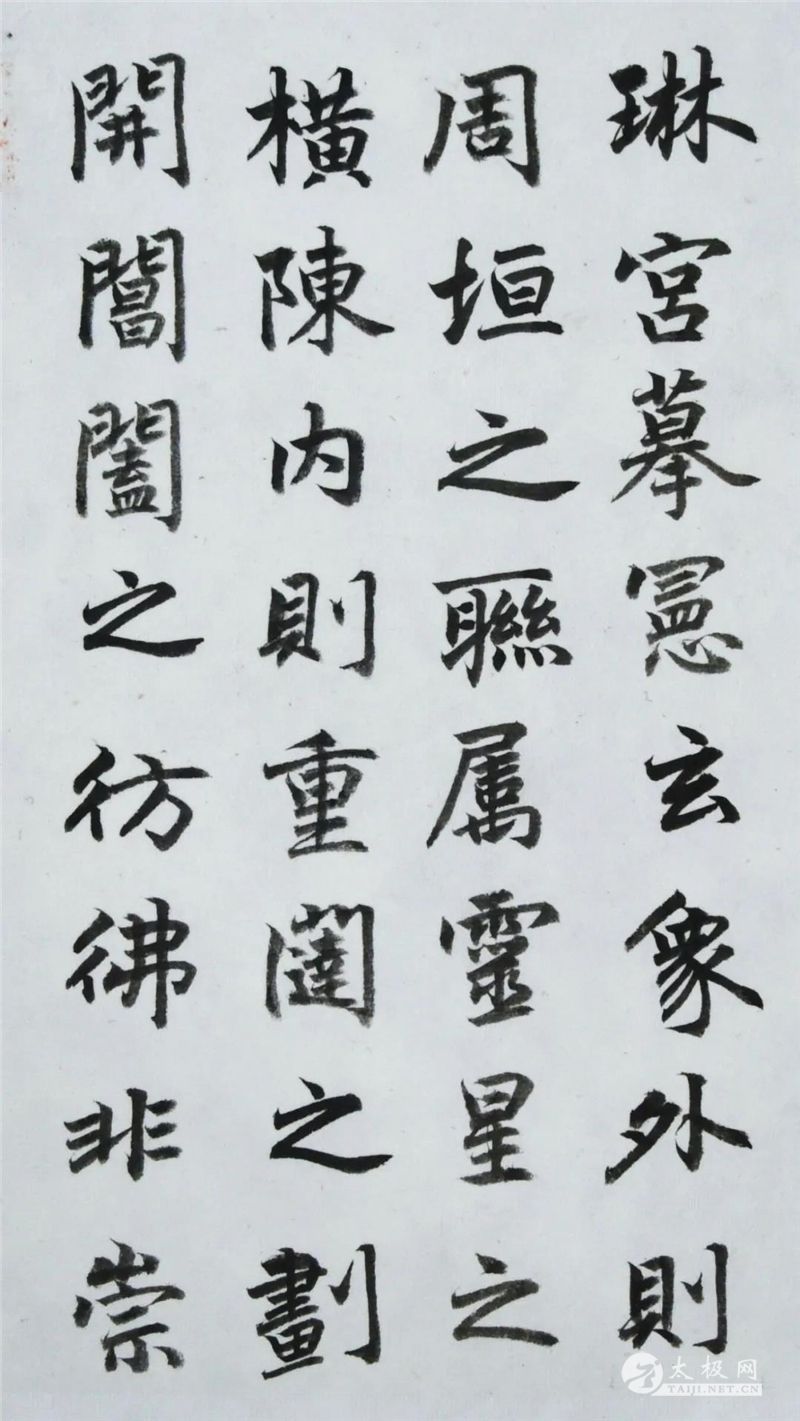 琳宮摹憲玄象外則
周垣之聯属靈星之
橫陳内則重闥之劃
開閶闔之彷彿非崇
太极网
TAIJI.NET.CN